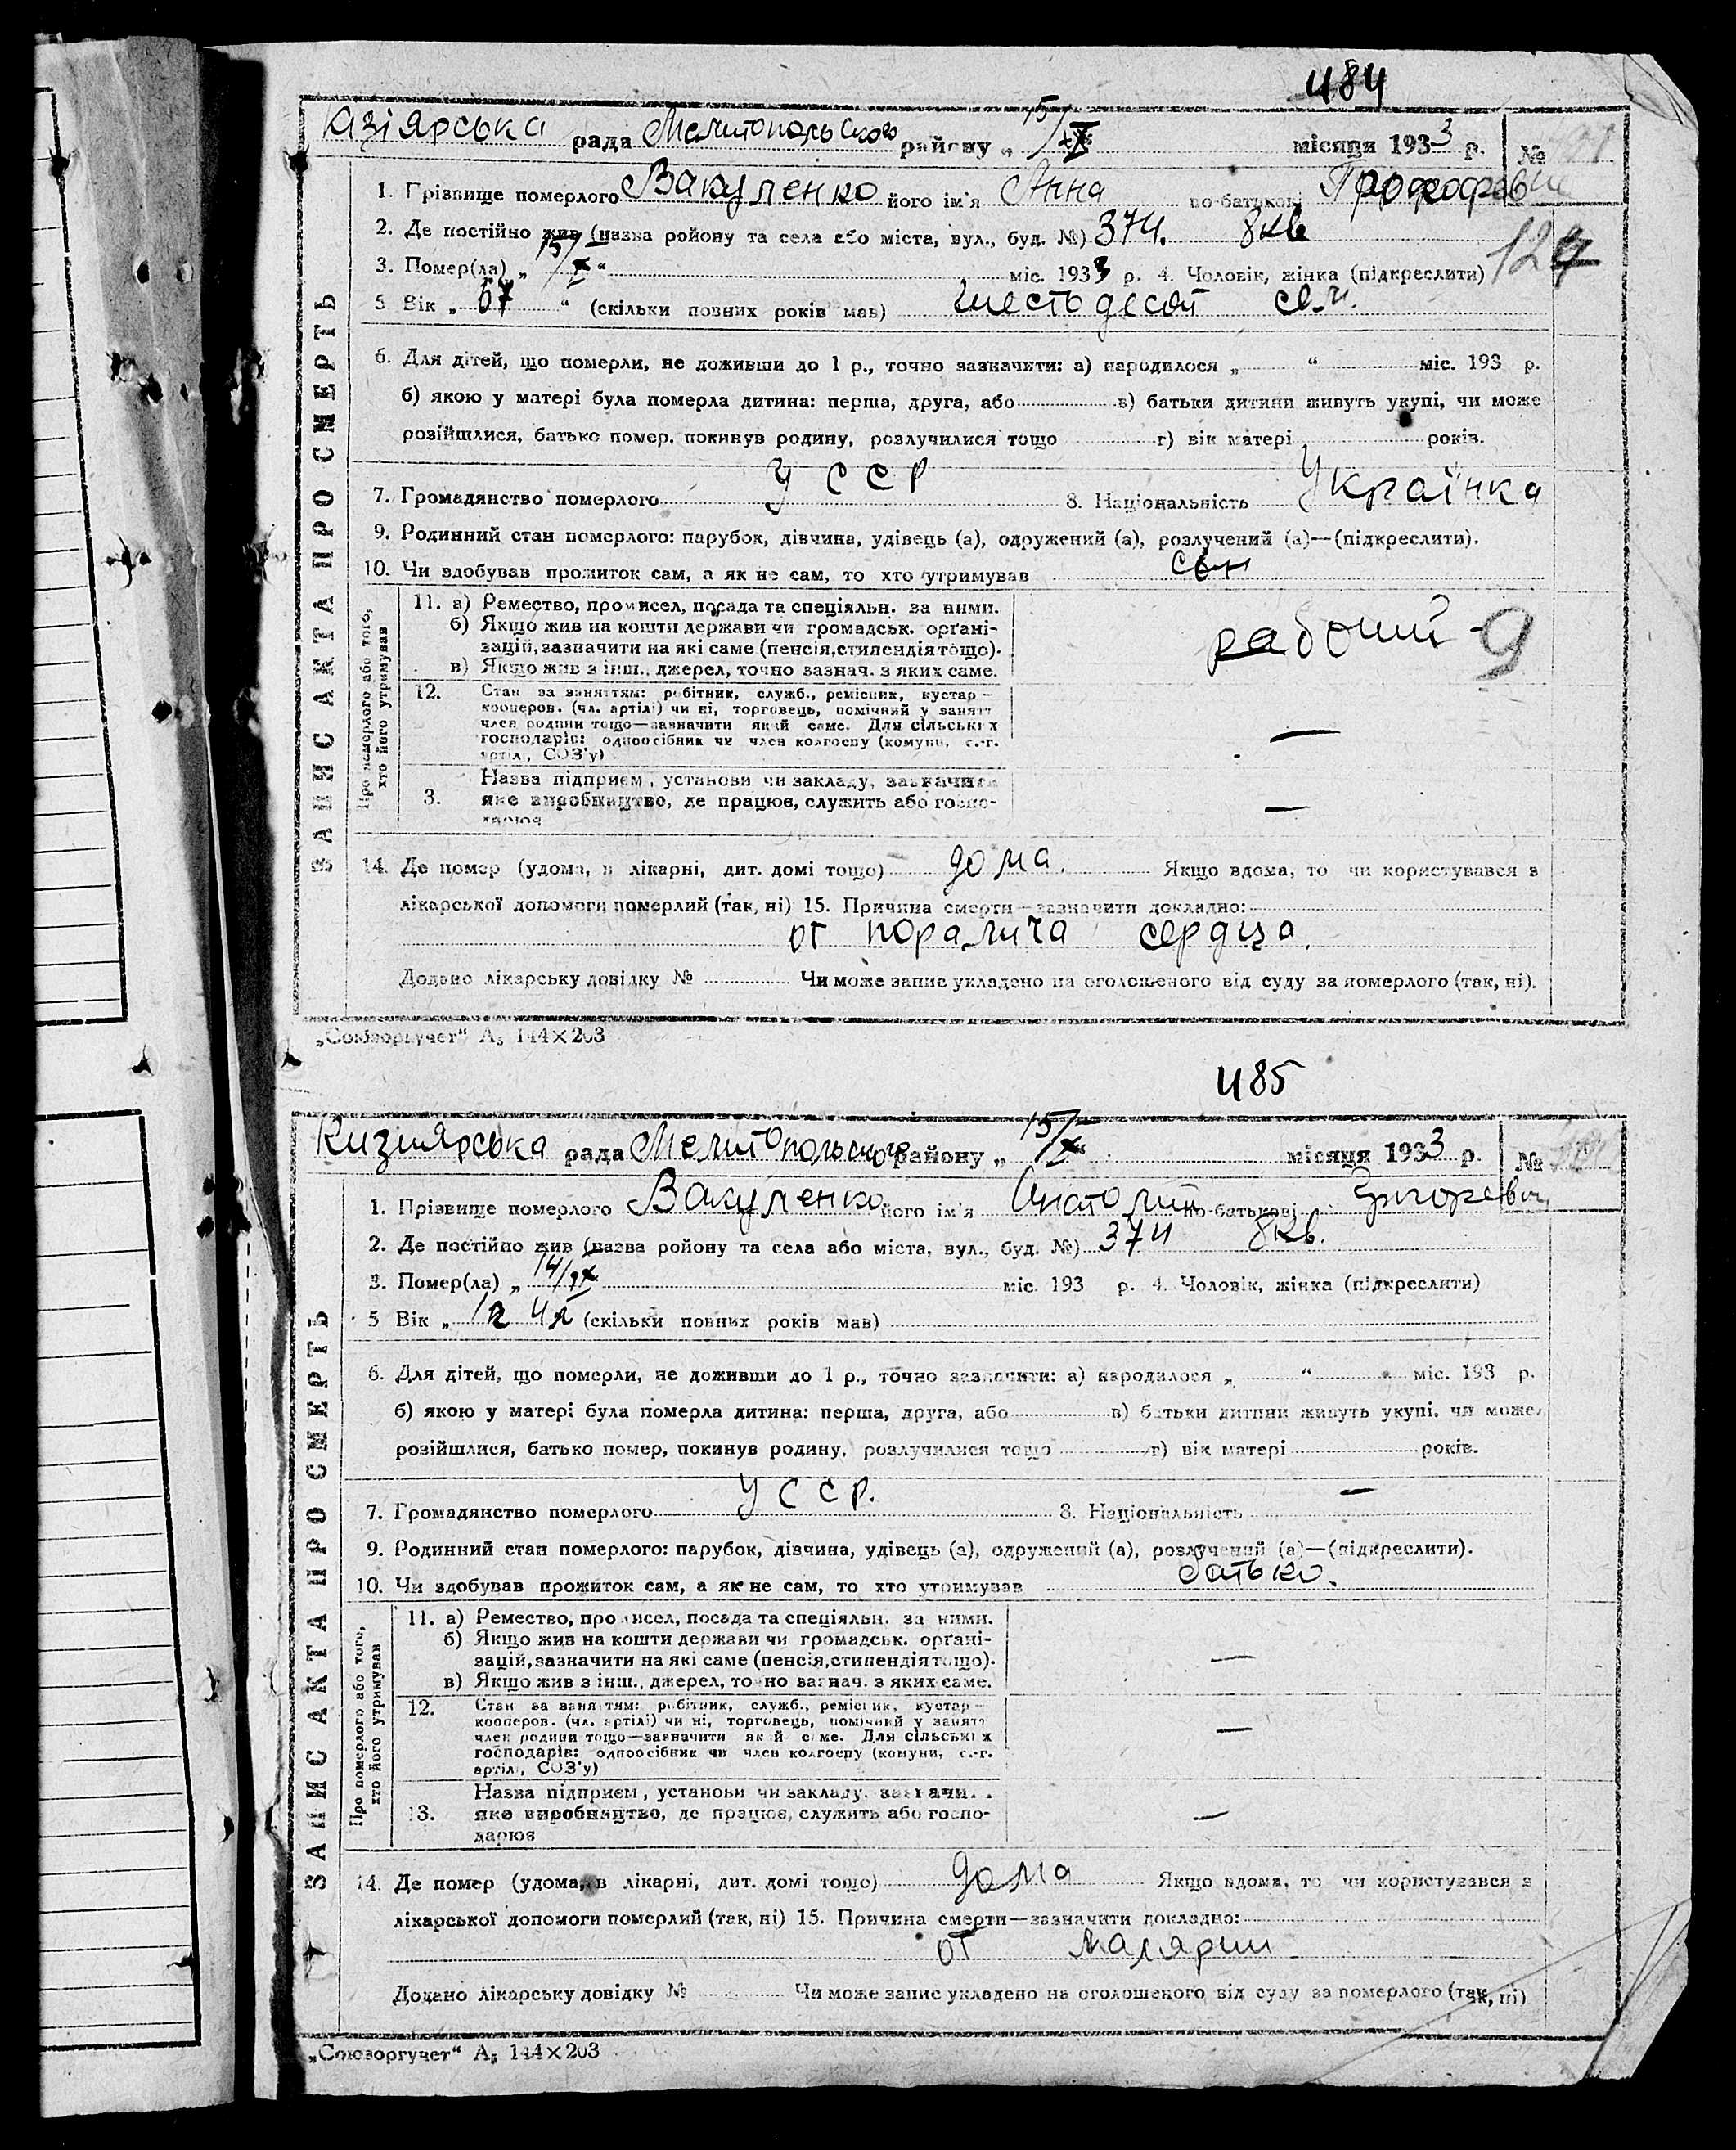 484
Казіярська рада Мелитопольского району „ 15/IX місяця 1933 р. №
1. Прізвище померлого Вакуленко його ім'я Анна по-батькові
2. Де постійно жив (назва ройону та села або міста, вул., буд. №) 374. 8кв
3. Помер(ла) „ 15/IX “ міс. 1933 р. 4. Чоловік, жінка (підкреслити) 124
5 Вік „ 67 “ (скільки повних років мав) шестьдесят сем.
6. Для дітей, що померли, не доживши до 1 р., точно зазначити: а) народилося „ “ міс. 193 р.
б) якою у матері була померла дитина: перша, друга, або в) батьки дитини живуть укупі, чи може
розійшлися, батько помер, покинув родину, розлучилися тощо г) вік матері років.
7. Громадянство померлого У С С Р 8. Національність Українка
9. Родинний стан померлого: парубок, дівчина, удівець (а), одружений (а), розлучений (а)—(підкреслити).
10. Чи здобував прожиток сам, а як не сам, то хто утримував сын
ЗАПИС АКТА ПРО СМЕРТЬ
Про померлого або того, хто його утримував
11. а) Ремество, промисел, посада та спеціяльн. за ними.
б) Якщо жив на кошти держави чи громадськ. орґані-
зацій, зазначити на які саме (пенсія, стипендія тощо).
в) Якщо жив з інш., джерел, точно зазнач. з яких саме.
рабочий 9
12. Стан за заняттям: робітник, служб., ремісник, кустар —
кооперов. (чл. артілі) чи ні, торговець, помічний у занятт
член родини тощо—зазначити який саме. Для сільських
господарів: одноосібник чи член колгоспу (комуни, с.-г.
артілі, СОЗ'у) —
3. Назва підприєм, установи чи закладу,
яке виробництво, де працює, служить або госпо-
дарює —
14. Де помер (удома, в лікарні, дит. домі тощо) дома. Якщо вдома, то чи користувався з
лікарської допомоги померлий (так, ні) 15. Причина смерти—зазначити докладно:
от поралича сердца.
Додано лікарську довідку № Чи може запис укладено на оголошеного від суду за померлого (так, ні).
„Союзоргучет“ А5 144×203
485
Кизиярська рада Мелитопольского району „ 15/IX місяця 1933 р. №
1. Прізвище померлого Вакуленко його ім'я Анатолий по-батькові
2. Де постійно жив (назва ройону та села або міста, вул., буд. №) 374 8кв.
3. Помер(ла) „ 14/IX міс. 193 р. 4. Чоловік, жінка (підкреслити)
5 Вік „ (скільки повних років мав)
6. Для дітей, що померли, не доживши до 1 р., точно зазначити: а) народилося „ “ міс. 193 р.
б) якою у матері була померла дитина: перша, друга, або в) батьки дитини живуть укупі, чи може
розійшлися, батько помер, покинув родину, розлучилися тощо г) вік матері років.
7. Громадянство померлого У С С Р. 8. Національність —
9. Родинний стан померлого: парубок, дівчина, удівець (а), одружений (а), розлучений (а)—(підкреслити).
10. Чи здобував прожиток сам, а як не сам, то хто утримував батько.
ЗАПИС АКТА ПРО СМЕРТЬ
Про померлого або того, хто його утримував
11. а) Ремество, промисел, посада та спеціяльн. за ними.
б) Якщо жив на кошти держави чи громадськ. орґані-
зацій, зазначити на які саме (пенсія, стипендія тощо).
в) Якщо жив з інш., джерел, точно зазнач. з яких саме. —
12. Стан за заняттям: робітник, служб., ремісник, кустар —
кооперов. (чл. артілі) чи ні, торговець, помічний у занятт
член родини тощо—зазначити який саме. Для сільських
господарів: одноосібник чи член колгоспу (комуни, с.-г.
артілі, СОЗ'у) —
13. Назва підприєм, установи чи закладу,
яке виробництво, де працює, служить або госпо-
дарює —
14. Де помер (удома, в лікарні, дит. домі тощо) дома Якщо вдома, то чи користувався з
лікарської допомоги померлий (так, ні) 15. Причина смерти—зазначити докладно:
от малярии
Додано лікарську довідку № Чи може запис укладено на оголошеного від суду за померлого (так, ні)
„Союзоргучет“ А5 144×203